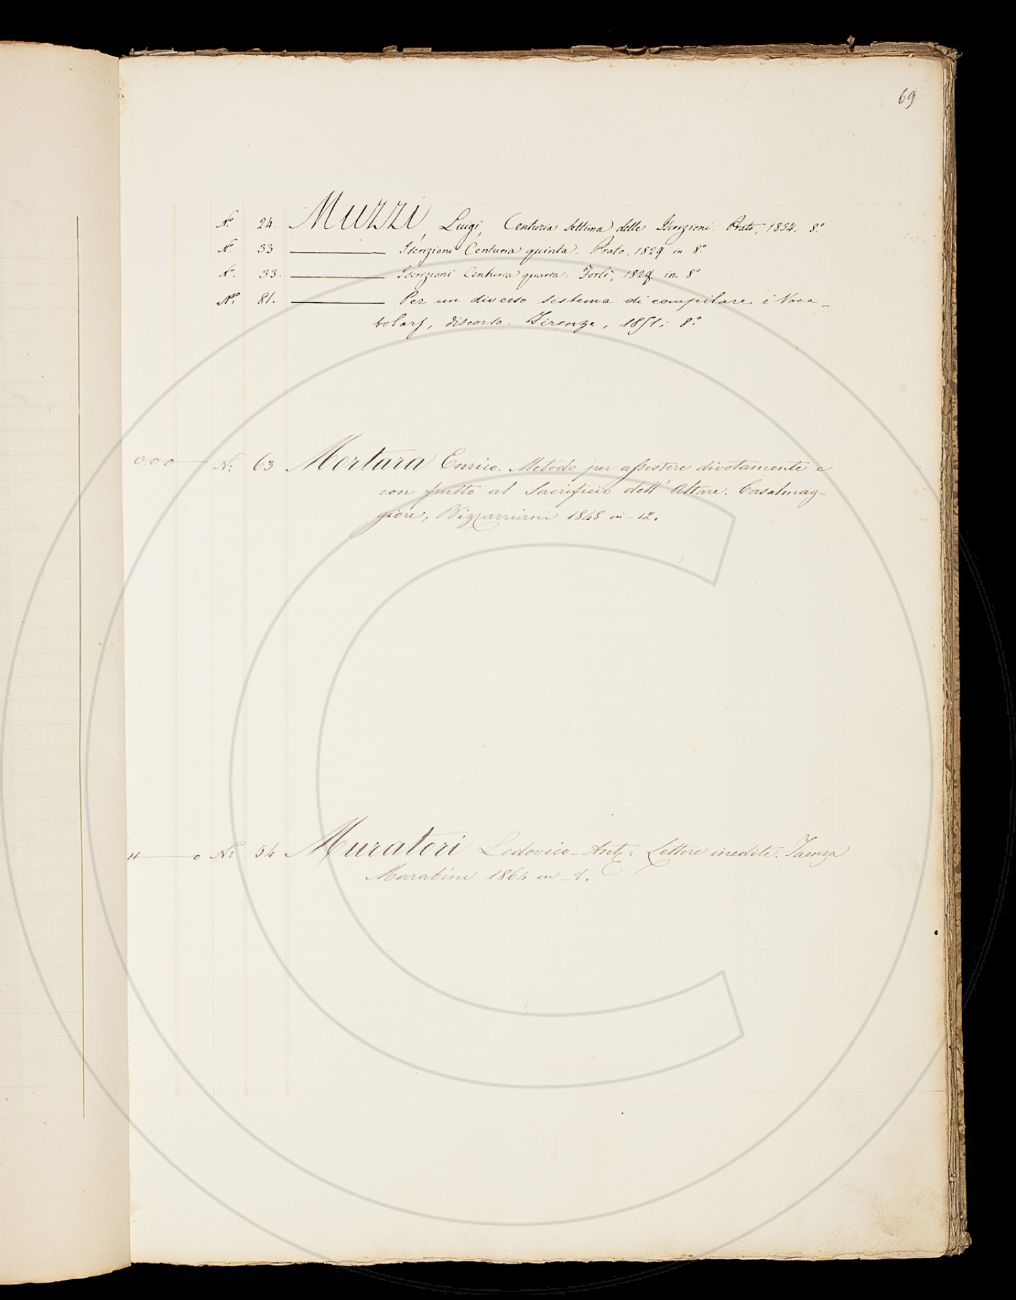 69
N.º 24. Muzzi, Luigi, Centuria settima delle Iscrizioni. Prato, 1834. 8.º
N.º 33 ——— Iscrizioni Centuria quinta. Prato, 1829. in 8.º
N.º 33. ——— Iscrizioni Centuria quarta. Forlì, 1828 in 8.º
N.º 81. ——— Per un diverso sistema di compilare i Voca-
bolarj, discorso. Firenze, 1851; 8.º
0.00 — N.º 63 Mortara Enrico. Metodo per assistere divotamente e
con frutto al Sacrificio dell'Altare. Casalmag-
giore, Bizzarrini 1848 in-12.
N.º 54 Muratori Lodovico-Ant.: Lettere inedite: Faenza
Marabini 1864 in-8.